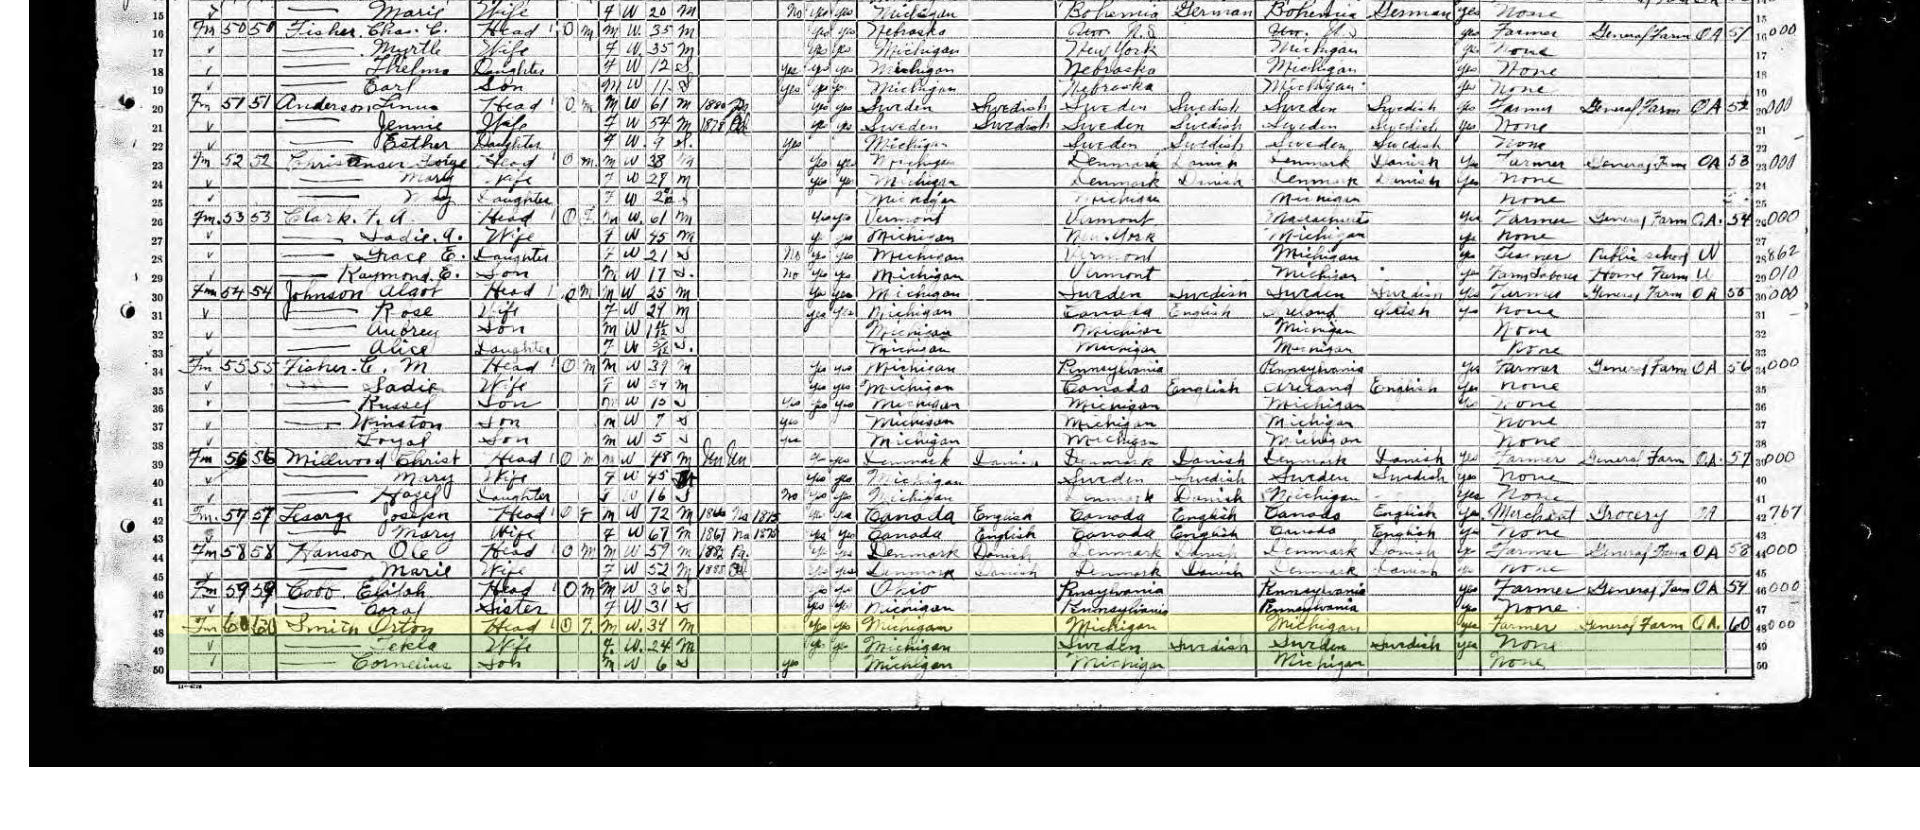 15 Marie Wife F W 20 M No yes yes Michigan Bohemia German Bohemia German yes None 15
16 Fm 50 50 Fisher Chas. C. Head O M M W 35 M yes yes Nebraska yes Farmer General Farm OA 51 16 000
17 Myrtle Wife F W 35 M yes yes Michigan New York Michigan yes None 17
18 Thelma Daughter F W 12 S yes yes yes Michigan Nebraska Michigan yes None 18
19 Earl Son M W 11 S yes yes Michigan Nebraska Michigan yes None 19
20 Fm 51 51 Anderson Linus Head O M M W 61 M 1880 yes yes Sweden Swedish Sweden Swedish Sweden Swedish yes Farmer General Farm OA 52 20 000
21 Jennie Wife F W 54 M 1878 yes yes Sweden Swedish Sweden Swedish Sweden Swedish yes None 21
22 Esther Daughter F W 9 S. yes Michigan Sweden Swedish Sweden Swedish None 22
23 Fm 52 52 Head O M. M W 38 M yes yes Michigan Denmark Danish Denmark Danish yes Farmer General Farm OA 53 23 000
24 Mary Wife F W 28 M yes yes Michigan Denmark Danish Denmark Danish yes None 24
25 May Daughter F W S Michigan Michigan Michigan None 25
26 Fm. 53 53 Clark. Head O F M W 61 M yes yes Vermont Vermont Massachusetts yes Farmer General Farm OA. 54 26 000
27 Sadie. A. Wife F W 45 M yes yes Michigan New York Michigan yes None 27
28 Grace E. Daughter F W 21 S No yes yes Michigan Vermont Michigan yes Teacher Public school W 28 862
29 Raymond. E. Son M W 17 S. No yes yes Michigan Vermont Michigan yes Farm Laborer Home Farm W 29 010
30 Fm 54 54 Johnson Algot Head O M M W 25 M yes yes Michigan Sweden Swedish Sweden Swedish yes Farmer General Farm OA 55 30 000
31 Rose Wife F W 24 M yes yes Michigan Canada English yes None 31
32 Audrey Son M W S Michigan Michigan Michigan None 32
33 Alice Daughter F W S. Michigan Michigan Michigan None 33
34 Fm 55 55 Fisher E. M Head O M M W 39 M yes yes Michigan Pennsylvania Pennsylvania yes Farmer General Farm OA 56 34 000
35 Sadie Wife F W 34 M yes yes Michigan Canada English English yes None 35
36 Russel Son M W S yes yes yes Michigan Michigan Michigan yes None 36
37 Winston Son M W 7 S yes Michigan Michigan Michigan None 37
38 Loyal Son M W 5 S yes Michigan Michigan Michigan None 38
39 Fm 56 56 Millwood Christ Head O M M W 48 M Un Un yes yes Denmark Danish Denmark Danish Denmark Danish yes Farmer General Farm OA. 57 39 000
40 Mary Wife F W 45 M yes yes Michigan Sweden Swedish Sweden Swedish yes None 40
41 Hazel Daughter F W 16 S No yes yes Michigan Denmark Danish Michigan yes None 41
42 Fm. 57 57 Lesarge Joseph Head O F M W 72 M 1866 Na 1875 yes yes Canada English Canada English Canada English yes Merchant Grocery OA 42 767
43 Mary Wife F W 67 M 1867 Na 1875 yes yes Canada English Canada English Canada English yes None 43
44 Fm 58 58 Hanson Ole Head O M M W 59 M 1882 Pa yes yes Denmark Danish Denmark Danish Denmark Danish yes Farmer General Farm OA 58 44 000
45 Marie Wife F W 52 M 1888 yes yes Denmark Danish Denmark Danish Denmark Danish yes None 45
46 Fm 59 59 Cobb Elijah Head O M M W 36 S yes yes Ohio Pennsylvania Pennsylvania yes Farmer General Farm OA 59 46 000
47 Cora Sister F W 31 S yes yes Michigan Pennsylvania Pennsylvania yes None 47
48 Fm 60 60 Smith Orton Head O F. M W. 34 M yes yes Michigan Michigan Michigan yes Farmer General Farm OA. 60 48 000
49 Tekla Wife F W. 24 M yes yes Michigan Sweden Swedish Sweden Swedish yes None 49
50 Cornelius Son M W 6 S yes Michigan Michigan Michigan None 50